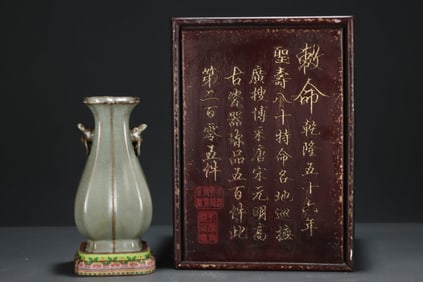 敕命 乾隆五十六年
聖壽八十特命各地巡撫
廣搜博采唐宋元明高
古瓷器珍品五百件此
第二百零五件